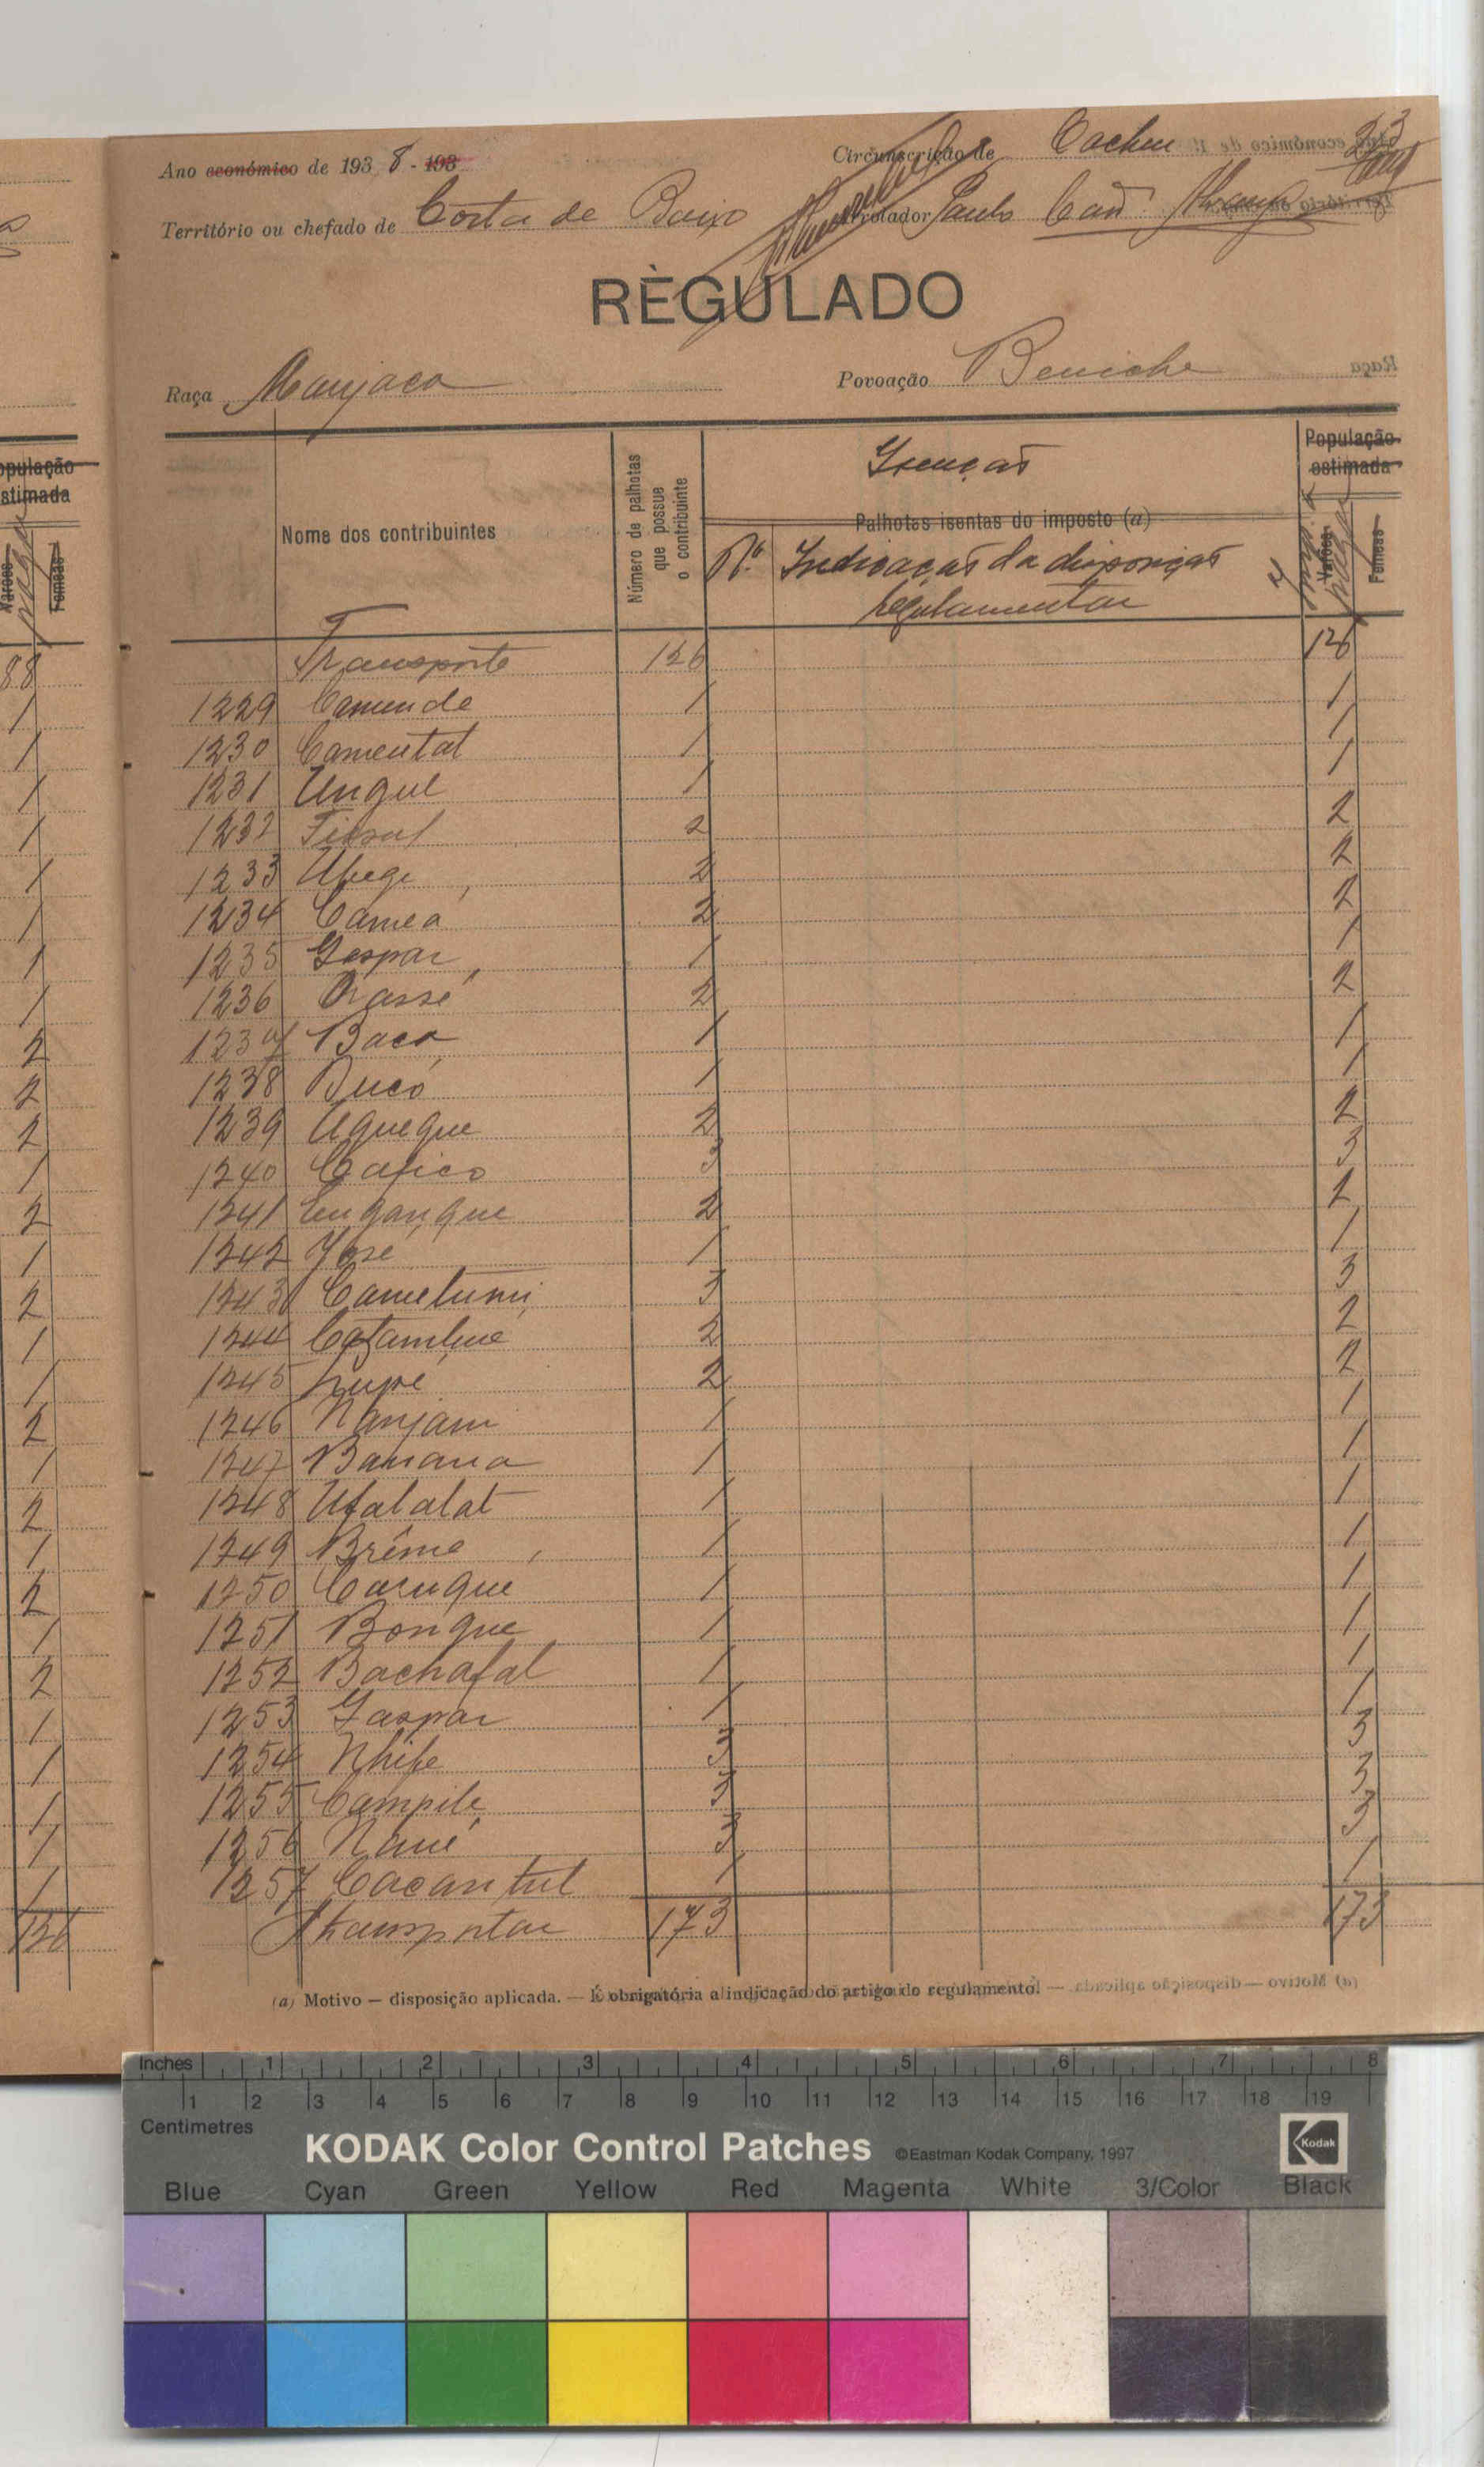 Ano económico de 1938 - 193
Circunscrição de Cacheu 23
Território ou chefado de Costa de Baixo
Arrolador Paulo
REGULADO
Raça Manjaca
Povoação Beniche
Nome dos contribuintes
Número de palhotas que possue o contribuinte
Isenções
Palhotas isentas do imposto (a)
N.º Indicação da disposição
regulamentar
População
estimada
Varões
Femeas
Transporte 126 126
1229 Camende 1 1
1230 Camental 1 1
1231 Ungul 1 1
1232 2 2
1233 2 2
1234 Cameá 2 2
1235 Gaspar 1 1
1236 2 2
1237 Baca 1 1
1238 Bucó 1 1
1239 Uqueque 2 2
1240 Cafico 3 3
1241 Enganque 2 2
1242 José 1 1
1243 Cametumi 3 3
1244 2 2
1245 2 2
1246 Nanjam 1 1
1247 Banana 1 1
1248 Ufalalat 1 1
1249 Brême 1 1
1250 Caruque 1 1
1251 Bonque 1 1
1252 Bachafal 1 1
1253 Gaspar 1 1
1254 Nhife 3 3
1255 Campile 3 3
1256 Naué 3 3
1257 Cacantul 1 1
Transportar 173 173
(a) Motivo — disposição aplicada. — É obrigatória a indicação do artigo do regulamento.
população
estimada
Varões
Femeas
88
1
1
1
1
1
1
1
1
2
2
2
1
2
1
2
1
1
2
1
2
1
2
1
2
1
1
1
1
1
126
Inches 1 2 3 4 5 6 7 8
1 2 3 4 5 6 7 8 9 10 11 12 13 14 15 16 17 18 19
Centimetres
KODAK Color Control Patches ©Eastman Kodak Company, 1997 Kodak
Blue Cyan Green Yellow Red Magenta White 3/Color Black